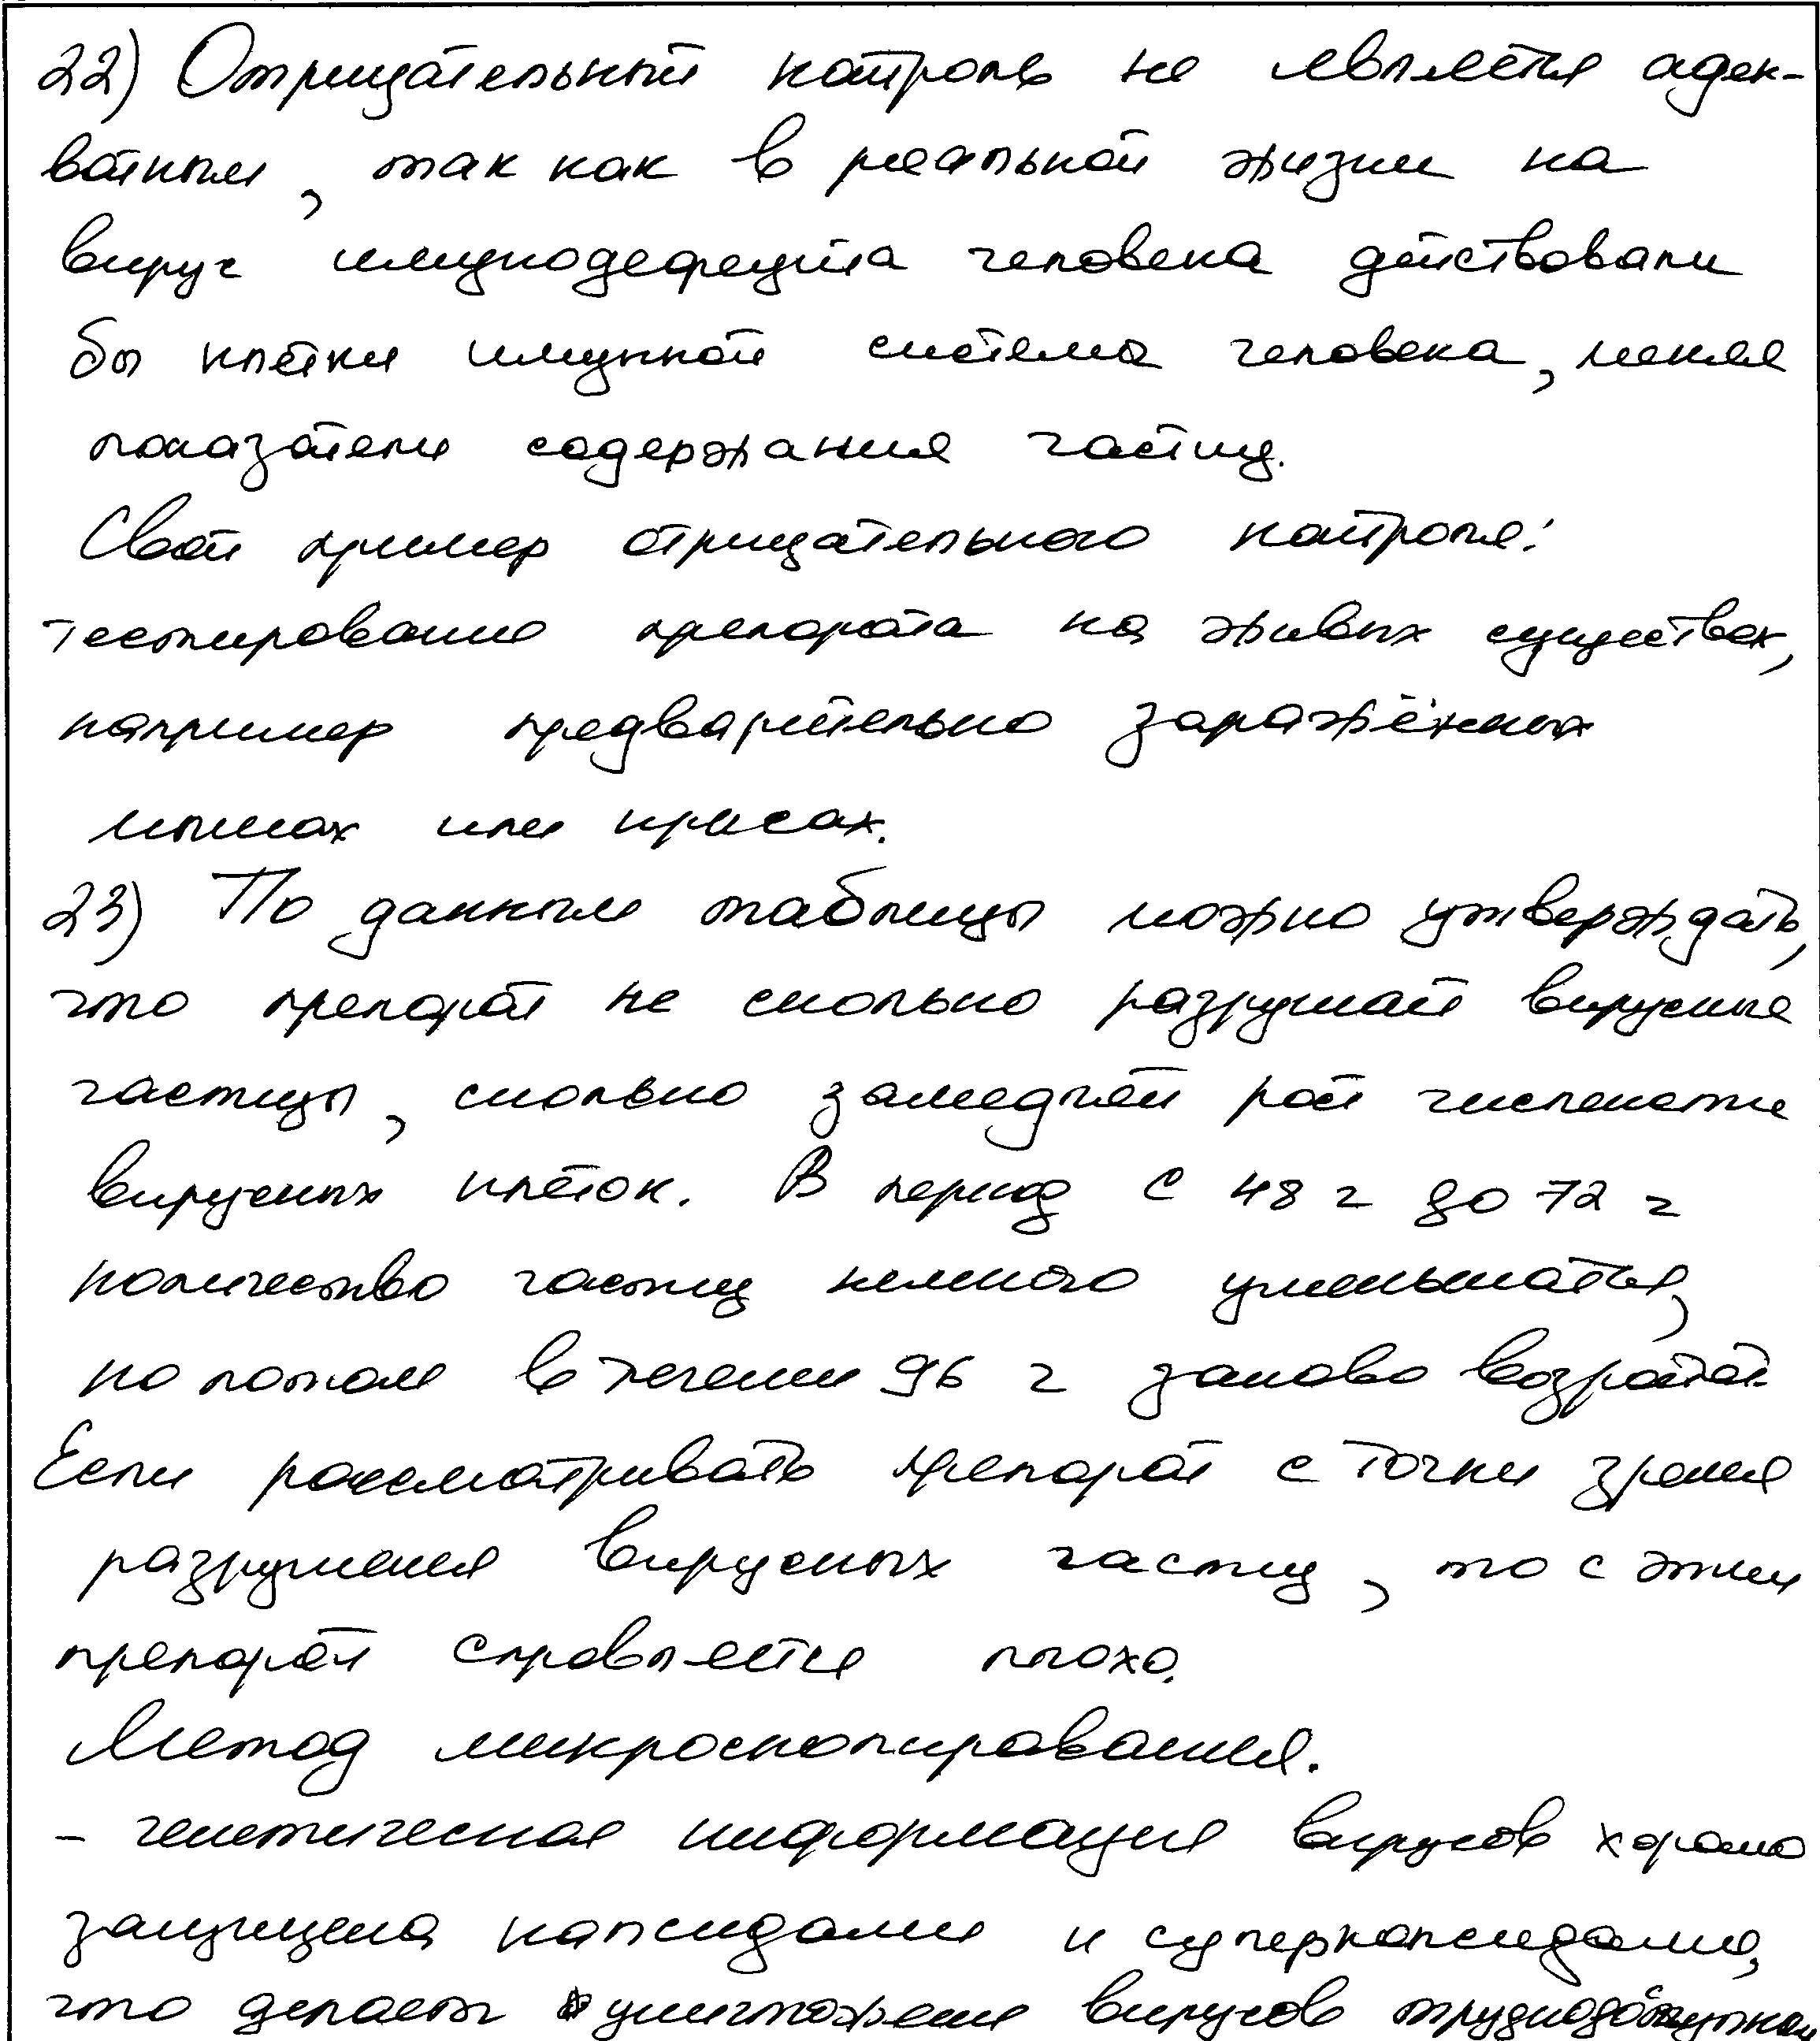 22) Отрицательный контроль не является адек-
ватным, так как в реальной жизни на
вирус имунодефецита человека действовали
бы клетки имунной системы человека, меняя
показатели содержания частиц.
Свой пример отрицательного контроля:
тестирование препарата на живых существах,
например предварительно заражённых
мышах или крысах.
23) По данным таблицы можно утверждать,
что препарат не сколько разрушает вирусные
частицы, сколько замедляет рост численности
вирусных клеток. В период с 48 ч до 72 ч
количество частиц немного уменьшается,
но потом в течении 96 ч заново возрастает.
Если рассматривать препарат с точки зрения
разрушения вирусных частиц, то с этим
препарат справляется плохо.
Метод микроскопирования.
- генетическая информация вирусов хорошо
защищена капсидами и суперкапсидами,
что делает уничтожение вирусов труднодоступным